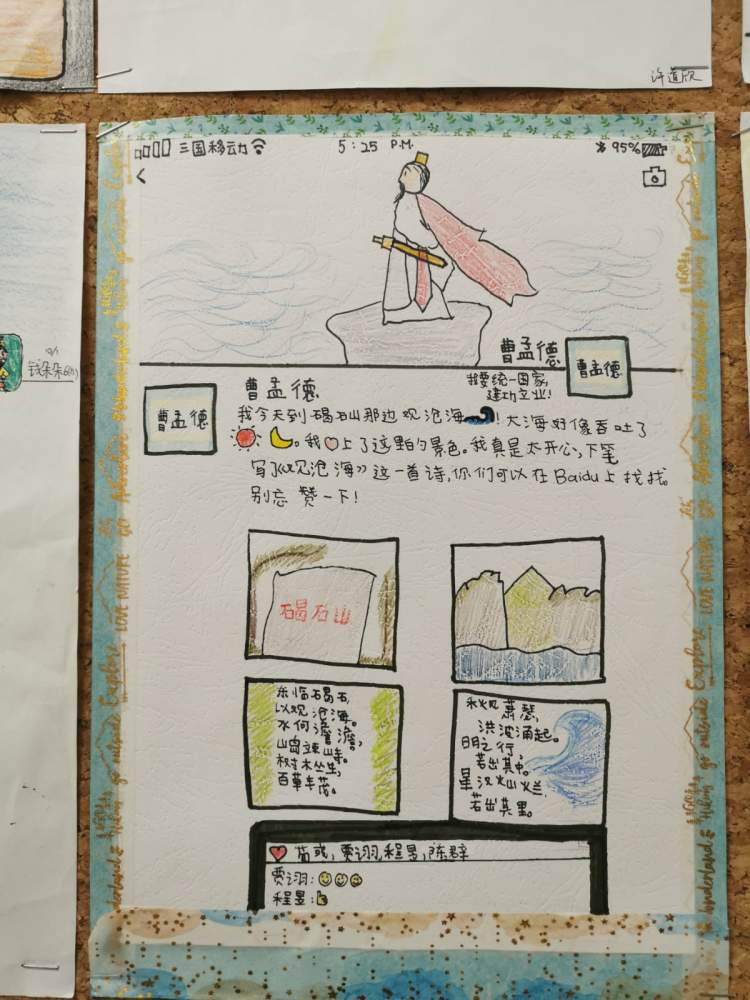 许道欣
三国移动 5:25 P.M. 95%
曹孟德
曹孟德
我要统一国家,
建功立业!
曹孟德
曹孟德
我今天到碣石山那边观沧海!大海好像吞吐了
。我上了这里的景色。我真是太开心,下笔
写了《观沧海》这一首诗,你们可以在Baidu上找找。
别忘赞一下!
碣石山
东临碣石,
以观沧海。
水何澹澹,
山岛竦峙。
树木丛生,
百草丰茂。
秋风萧瑟,
洪波涌起。
日月之行,
若出其中。
星汉灿烂,
若出其里。
荀彧,贾诩,程昱,陈群
贾诩:
程昱:
Explore
LOVE NATURE
GO
Adventure
go outside
Explore
LOVE NATURE
go outside